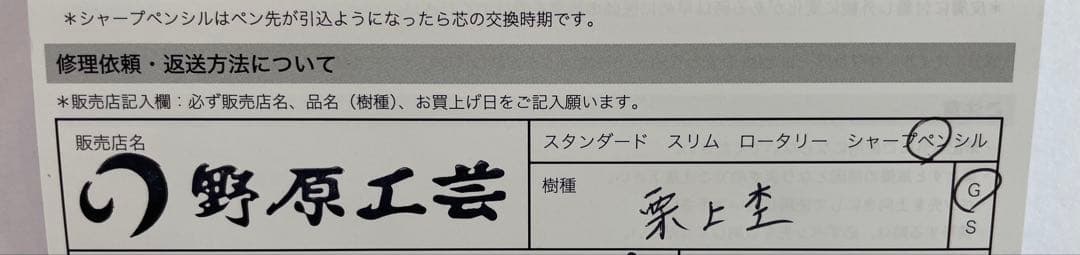 ＊シャープペンシルはペン先が引込ようになったら芯の交換時期です。
修理依頼・返送方法について
＊販売店記入欄：必ず販売店名、品名（樹種）、お買上げ日をご記入願います。
販売店名
野原工芸
スタンダード　スリム　ロータリー　シャープペンシル
樹種
栗上杢
G
S